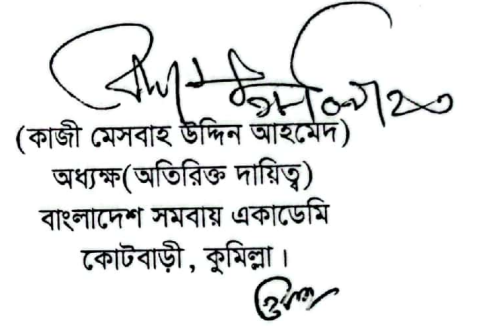 (কাজী মেসবাহ উদ্দিন আহমেদ)
অধ্যক্ষ(অতিরিক্ত দায়িত্ব)
বাংলাদেশ সমবায় একাডেমি
কোটবাড়ী, কুমিল্লা।